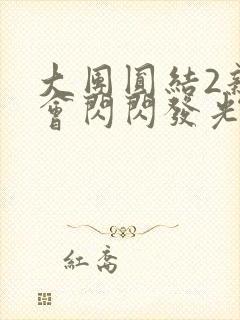 大團圓結2新
會閃閃發光
紅喬